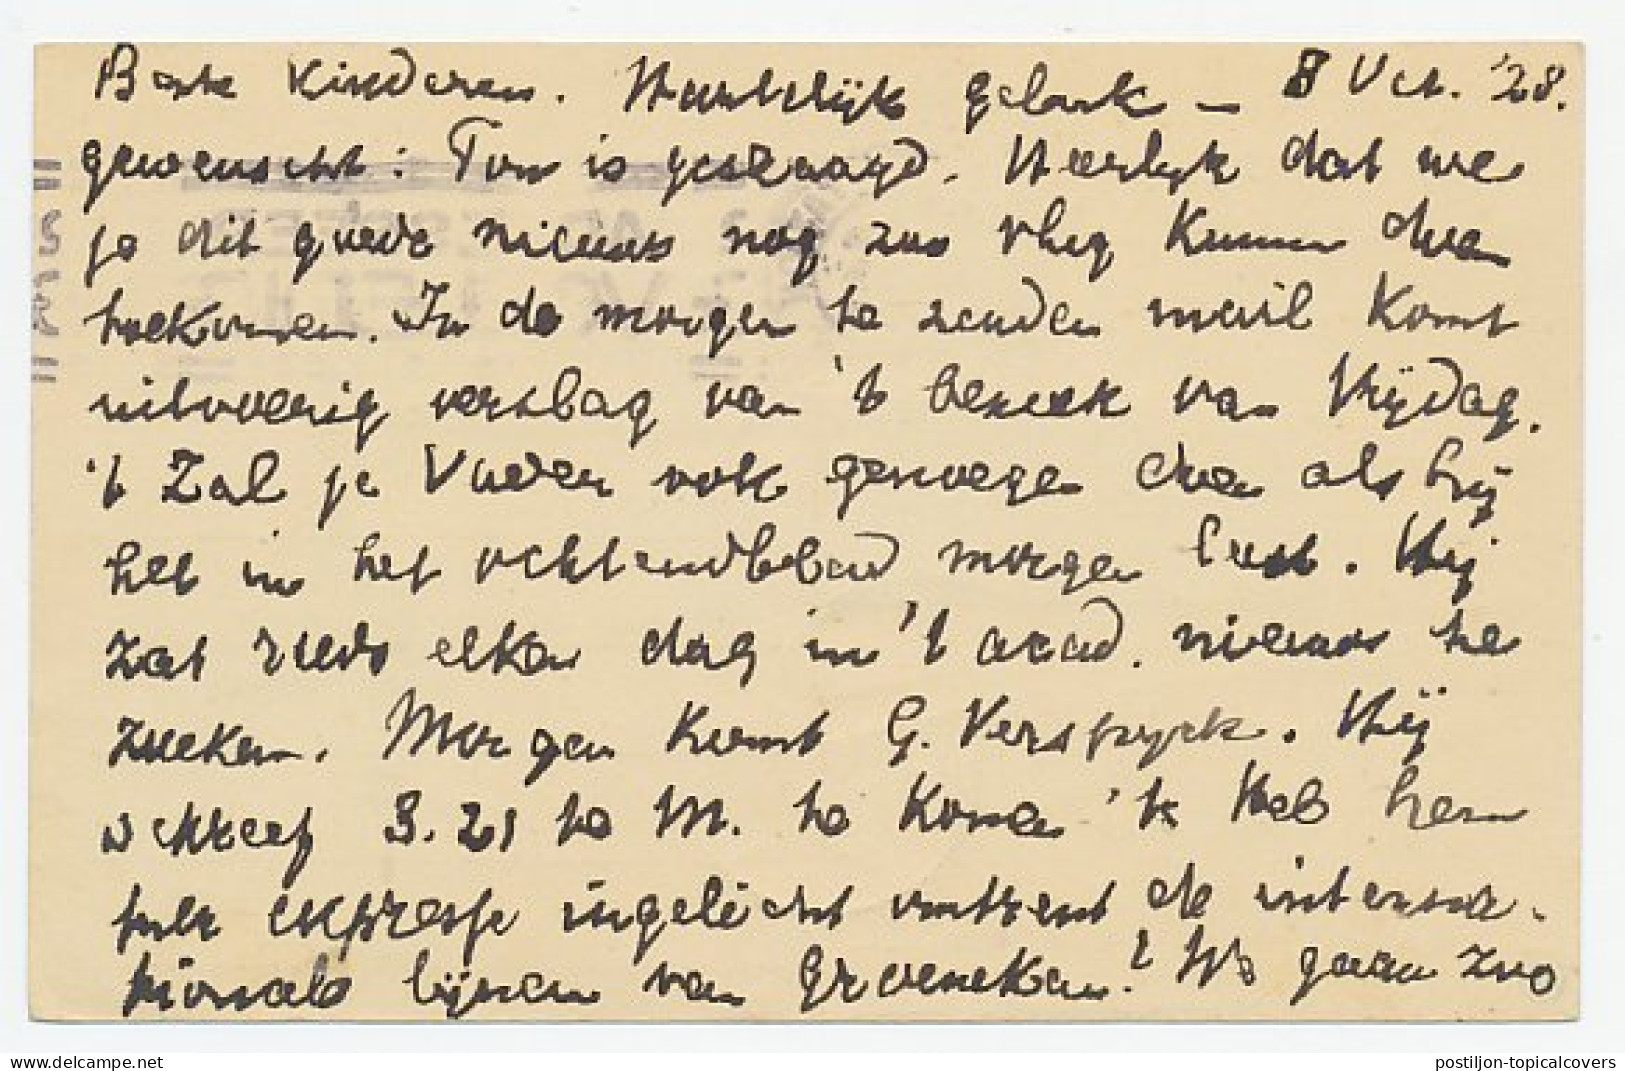 Beste Kinderen. Hartelijk geluk - 8 Oct. '28.
gewenscht: Ton is geslaagd. Heerlijk dat we
je dit goede nieuws nog zoo vlug kunnen doen
toekomen. In de morgen te zenden mail komt
uitvoerig verslag van 't bezoek van Vrijdag.
't Zal je Vader ook genoegen doen als hij
het in het ochtendblad morgen leest. Hij
zat reeds elken dag in 't acad. nieuws te
zoeken. Morgen komt G. Verspyck. Hij
schreef 3.21 te M. te komen 'k Heb hem
per expresse ingelicht omtrent de interna-
tionale lijnen van Groenekan! We gaan zoo
postiljon-topicalcovers